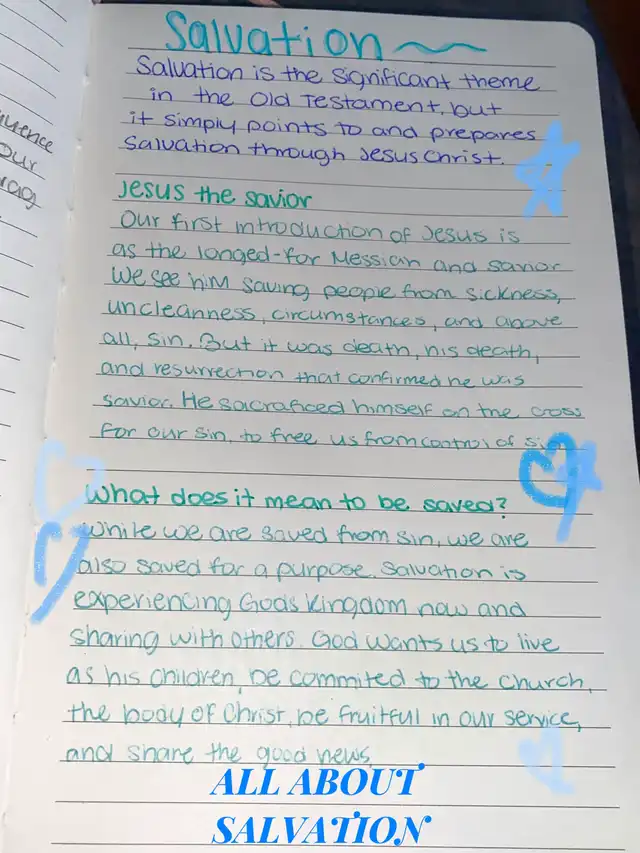 Salvation
Salvation is the significant theme
in the Old Testament, but
it simply points to and prepares
salvation through Jesus Christ.
Jesus the savior
Our first introduction of Jesus is
as the longed-for Messiah and savior
We see him saving people from sickness,
uncleanness, circumstances, and above
all, sin. But it was death, his death,
and resurrection that confirmed he was
savior. He sacraficed himself on the cross
for our sin, to free us from control of sin
What does it mean to be saved?
While we are saved from sin, we are
also saved for a purpose. Salvation is
experiencing Gods Kingdom now and
sharing with others. God wants us to live
as his children, be commited to the church,
the body of Christ, be fruitful in our service,
and share the good news.
uence
our
ALL ABOUT
SALVATION